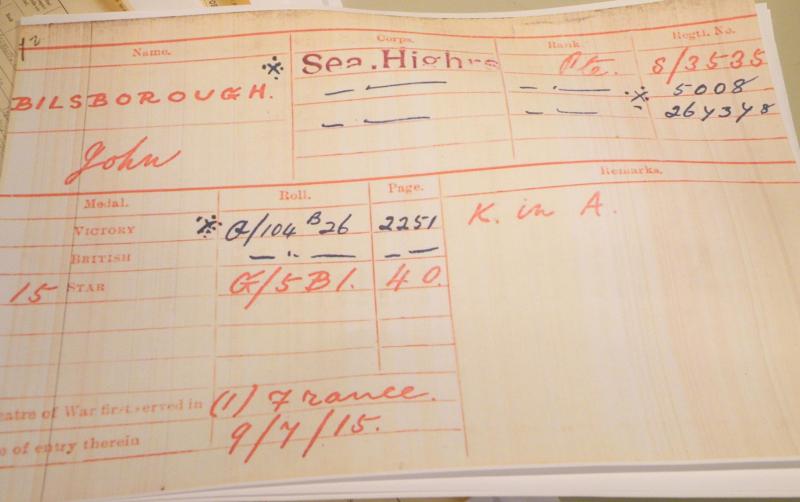 Name. Corps. Rank. Regtl. No.
BILSBOROUGH. Sea. Highrs Pte. S/3535
— " — — " — 5008
— " — — " — 267378
John
Medal. Roll. Page. Remarks.
VICTORY G/104 B 26 2251 K. in A.
BRITISH — " — — " —
15 STAR G/5 B1. 40.
eatre of War first served in (1) France.
e of entry therein 9/7/15.